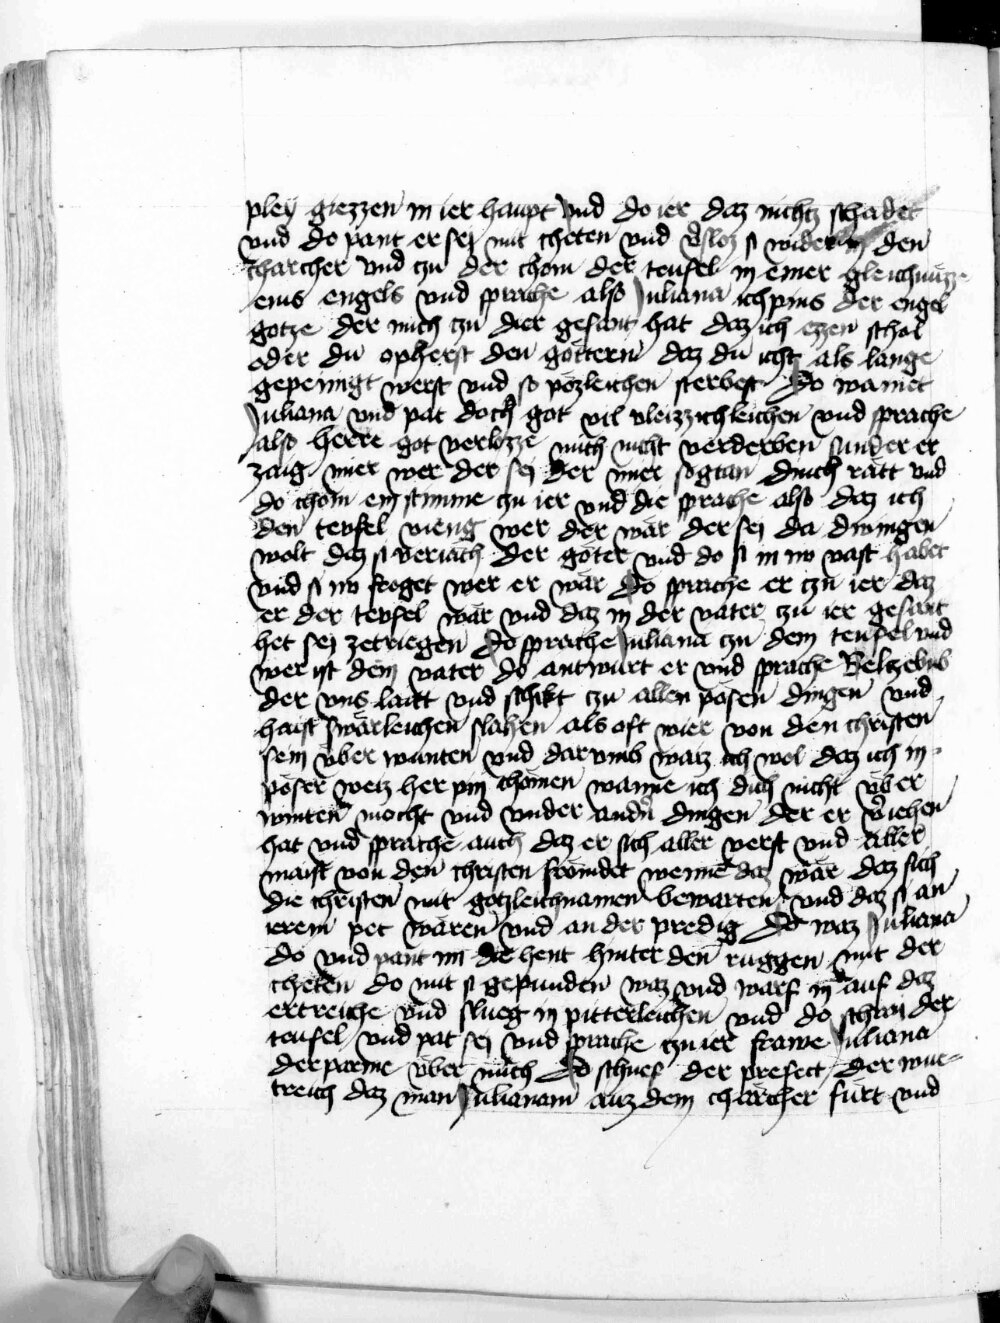 pley giezzen in ier haupt Vnd do ier daz nichtz schadet
vnd do pant er sei mit cheten vnd vsloz si wider in den
charcher Vnd tzu der chom der teufel in einer gleichnuzze
eins engels vnd sprache also Juliana ich pins der engel
gotze der mich tzu dier gesant hat daz ich ezzen schol
oder du opherst den göttern daz du icht als lange
gepeinigt werst vnd so pözleichen sterbest Do wainet
Juliana vnd pat doch got vil vleizzichleichen vnd sprache
also herre got verlozze mich nicht verderben sunder er
zaig mier wer der sei der mier sogtan dinch ratt vnd
do chom ein stimme tzu ier vnd die sprache also daz ich
den teufel vieng wer der wär der sei da dwingen
wolt daz si veriach der göter vnd do si in no vast habet
vnd si no froget wer er wär Do sprache er tzu ier daz
er der teufel wär vnd daz in der vater tzu ier gesant
het sei zetriegen Do sprache Juliana tzu dem teufel vnd
wer ist dein vater do antwurt er vnd sprache Beltzebub
der vns laitt vnd schikt tzu allen posen dingen vnd
haist swärleichen slahen als oft wier von den christen
sein vber wunten vnd dar vmb waiz ich wol daz ich in
pöser weiz her pin chömen wanne ich dich nicht vber
winten mocht vnd vnder andn dingen der er viehen
hat vnd sprache auch daz er sich aller verst vnd aller
maist von den christen frömdet wenne daz wär daz sich
die christen mit gotzleichnamen bewarten vnd daz si an
ierem pet wären vnd an der predig Do waz Juliana
do vnd pant im die hent hinter den ruggen mit der
cheten do mit si gepunden waz vnd warf in auf daz
ertreiche vnd slueg in pitterleichen vnd do schrai der
teufel vnd pat sei vnd sprache tzu ier frawe Juliana
der parme vber mich Do schuef der prefect der wue
treich daz man Julianam auz dem charcher fürt vnd